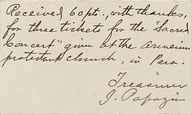 Received 60 pt., with thanks,
for three tickets for the "Sacred
Concert" given at the Armenian
protestant church, in Pera.
Treasurer
J. Papazian